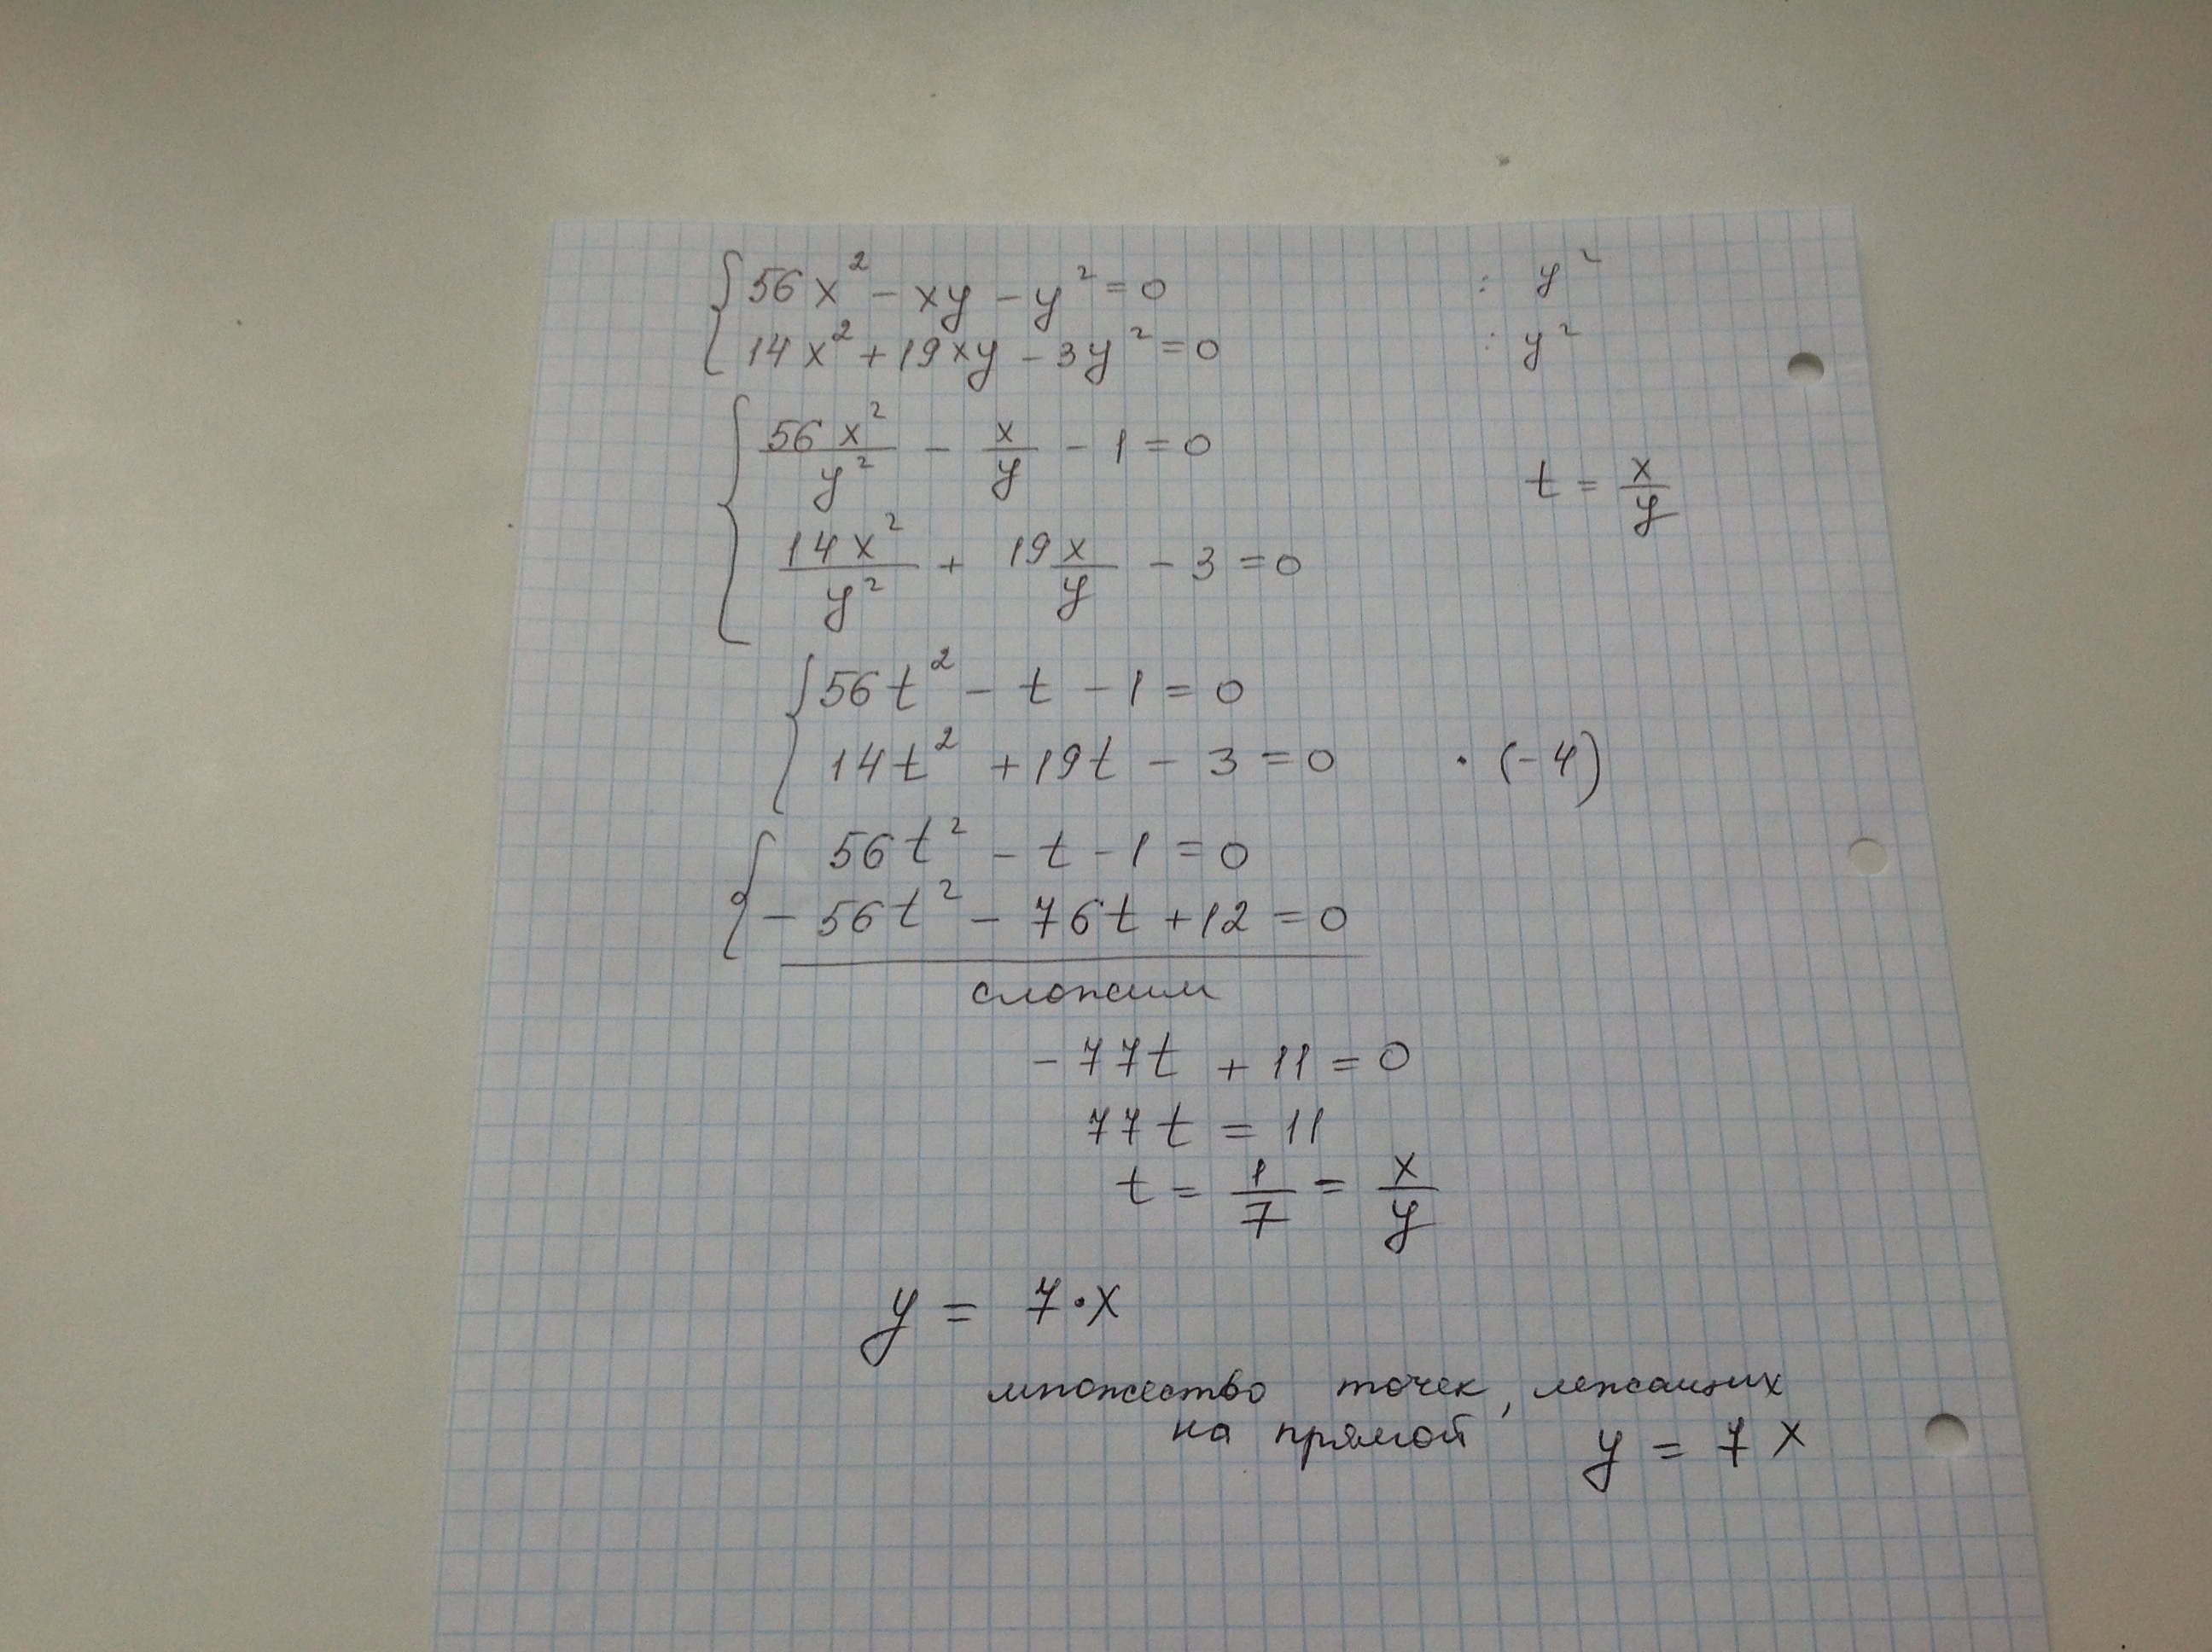 56x² - xy - y² = 0 : y²
14x² + 19xy - 3y² = 0 : y²
56x²/y² - x/y - 1 = 0
t = x/y
14x²/y² + 19x/y - 3 = 0
56t² - t - 1 = 0
14t² + 19t - 3 = 0 · (-4)
56t² - t - 1 = 0
- 56t² - 76t + 12 = 0
сложим
- 77t + 11 = 0
77t = 11
t = 1/7 = x/y
y = 7·x
множество точек, лежащих
на прямой y = 7x